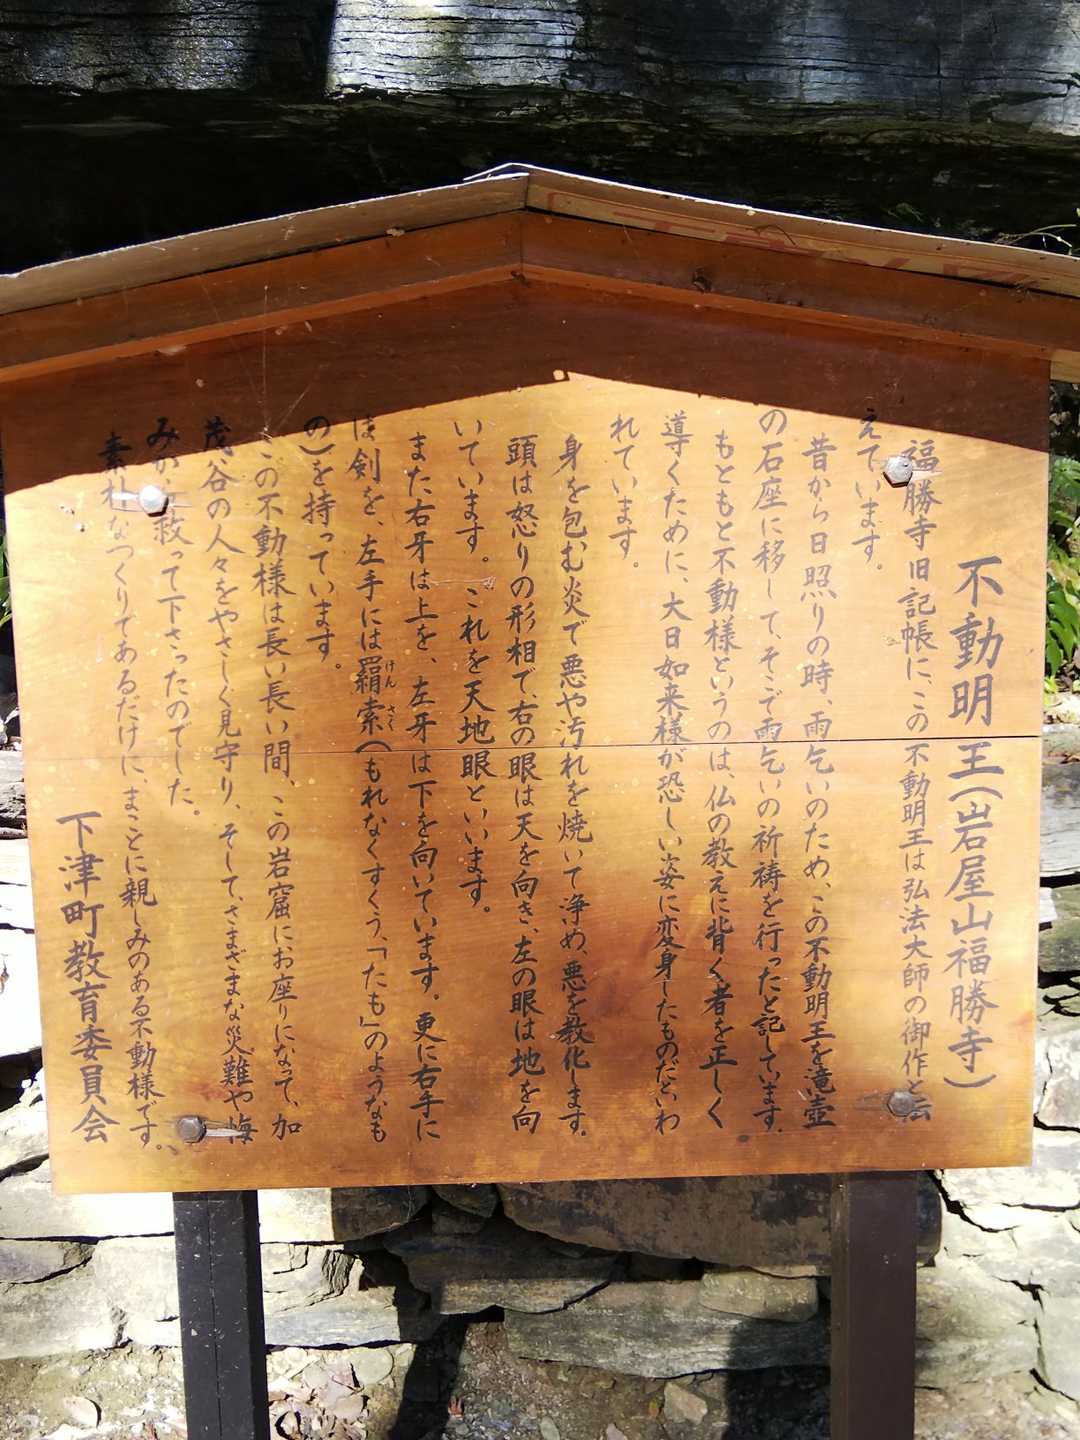 不動明王(岩屋山福勝寺)
福勝寺旧記帳に、この不動明王は弘法大師の御作と伝
えています。
昔から日照りの時、雨乞いのため、この不動明王を滝壺
の石座に移して、そこで雨乞いの祈祷を行ったと記しています。
もともと不動様というのは、仏の教えに背く者を正しく
導くために、大日如来様が恐しい姿に変身したものだといわ
れています。
身を包む炎で悪や汚れを焼いて浄め、悪を教化します。
頭は怒りの形相で、右の眼は天を向き、左の眼は地を向
いています。これを天地眼といいます。
また、右牙は上を、左牙は下を向いています。更に右手に
は剣を、左手には羂索(もれなくすくう、「たも」のようなも
の)を持っています。
この不動様は長い長い間、この岩窟にお座りになって、加
茂谷の人々をやさしく見守り、そして、さまざまな災難や悔
みから救って下さったのでした。
素朴なつくりであるだけに、まことに親しみのある不動様です。
下津町教育委員会
けんさく